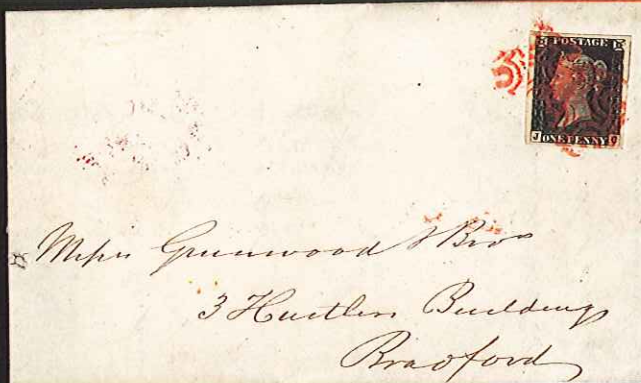 POSTAGE
J ONE PENNY G
Messrs Greenwood & Bros
3 Hustlers Buildings
Bradford